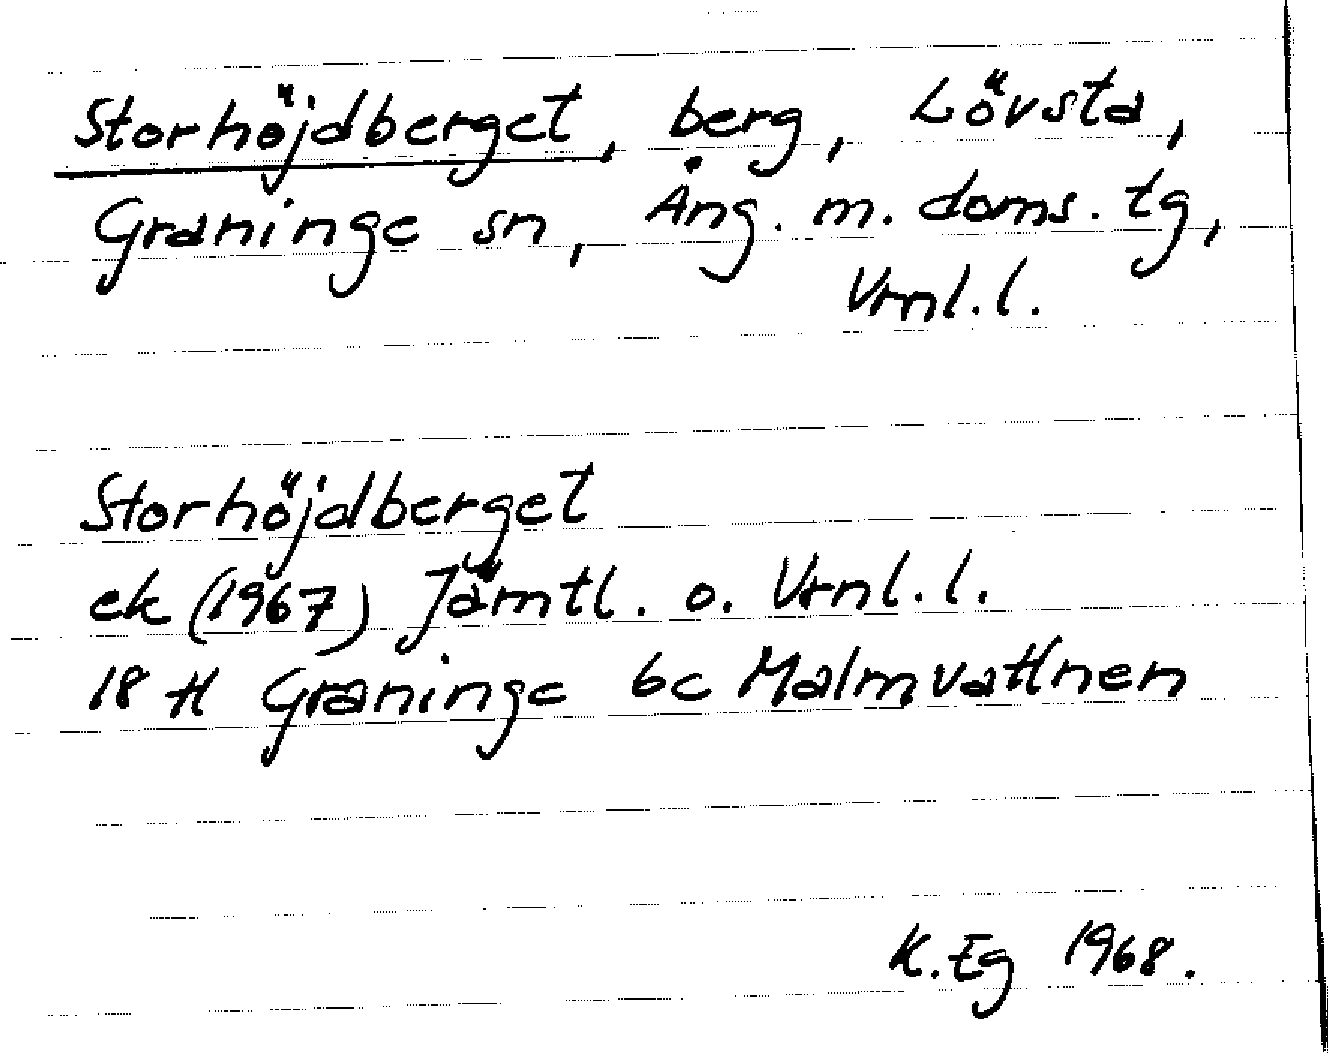 Storhöjdberget, berg, Lövsta,
Graninge sn, Ång. m. doms. tg,
Vrnl. l.
Storhöjdberget
ek (1967) Jämtl. o. Vrnl. l.
18 H Graninge 6c Malmvattnen
K. Eg 1968.